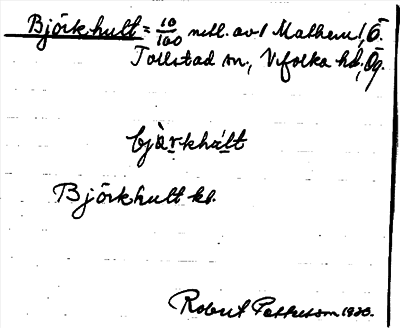 Björkhult = 10/100 mtl. av 1 Mathem, Ö.
Tollstad sn, Vifolka hd, Ög.
bjàrkhált
Björkhult kl.
Robert Pettersson 1920.